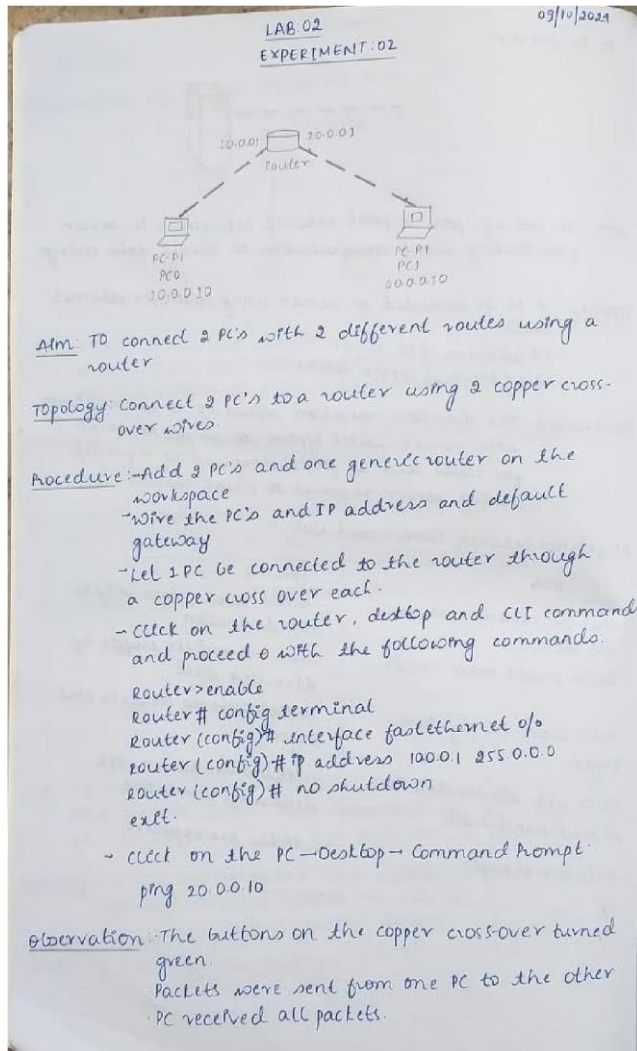 09/10/2024
LAB:02
EXPERIMENT:02
10.0.01 20.0.01
router
PC-PT PC-PT
PC0 PC1
10.0.0.10 20.0.0.10
Aim: To connect 2 PC's with 2 different routes using a
router
Topology: Connect 2 PC's to a router using 2 copper cross-
over wires.
Procedure:- Add 2 PC's and one generic router on the
workspace
- Wire the PC's and IP address and default
gateway
- Let 1 PC be connected to the router through
a copper cross over each.
- Click on the router, desktop and CLI command
and proceed with the following commands.
Router>enable
Router# config terminal
Router (config)# interface fastethernet 0/0
router (config)# ip address 100.0.1 255.0.0.0
router (config)# no shutdown
exit.
- Click on the PC → Desktop → Command Prompt.
ping 20.0.0.10
Observation:- The buttons on the copper cross-over turned
green.
Packets were sent from one PC to the other
PC received all packets.